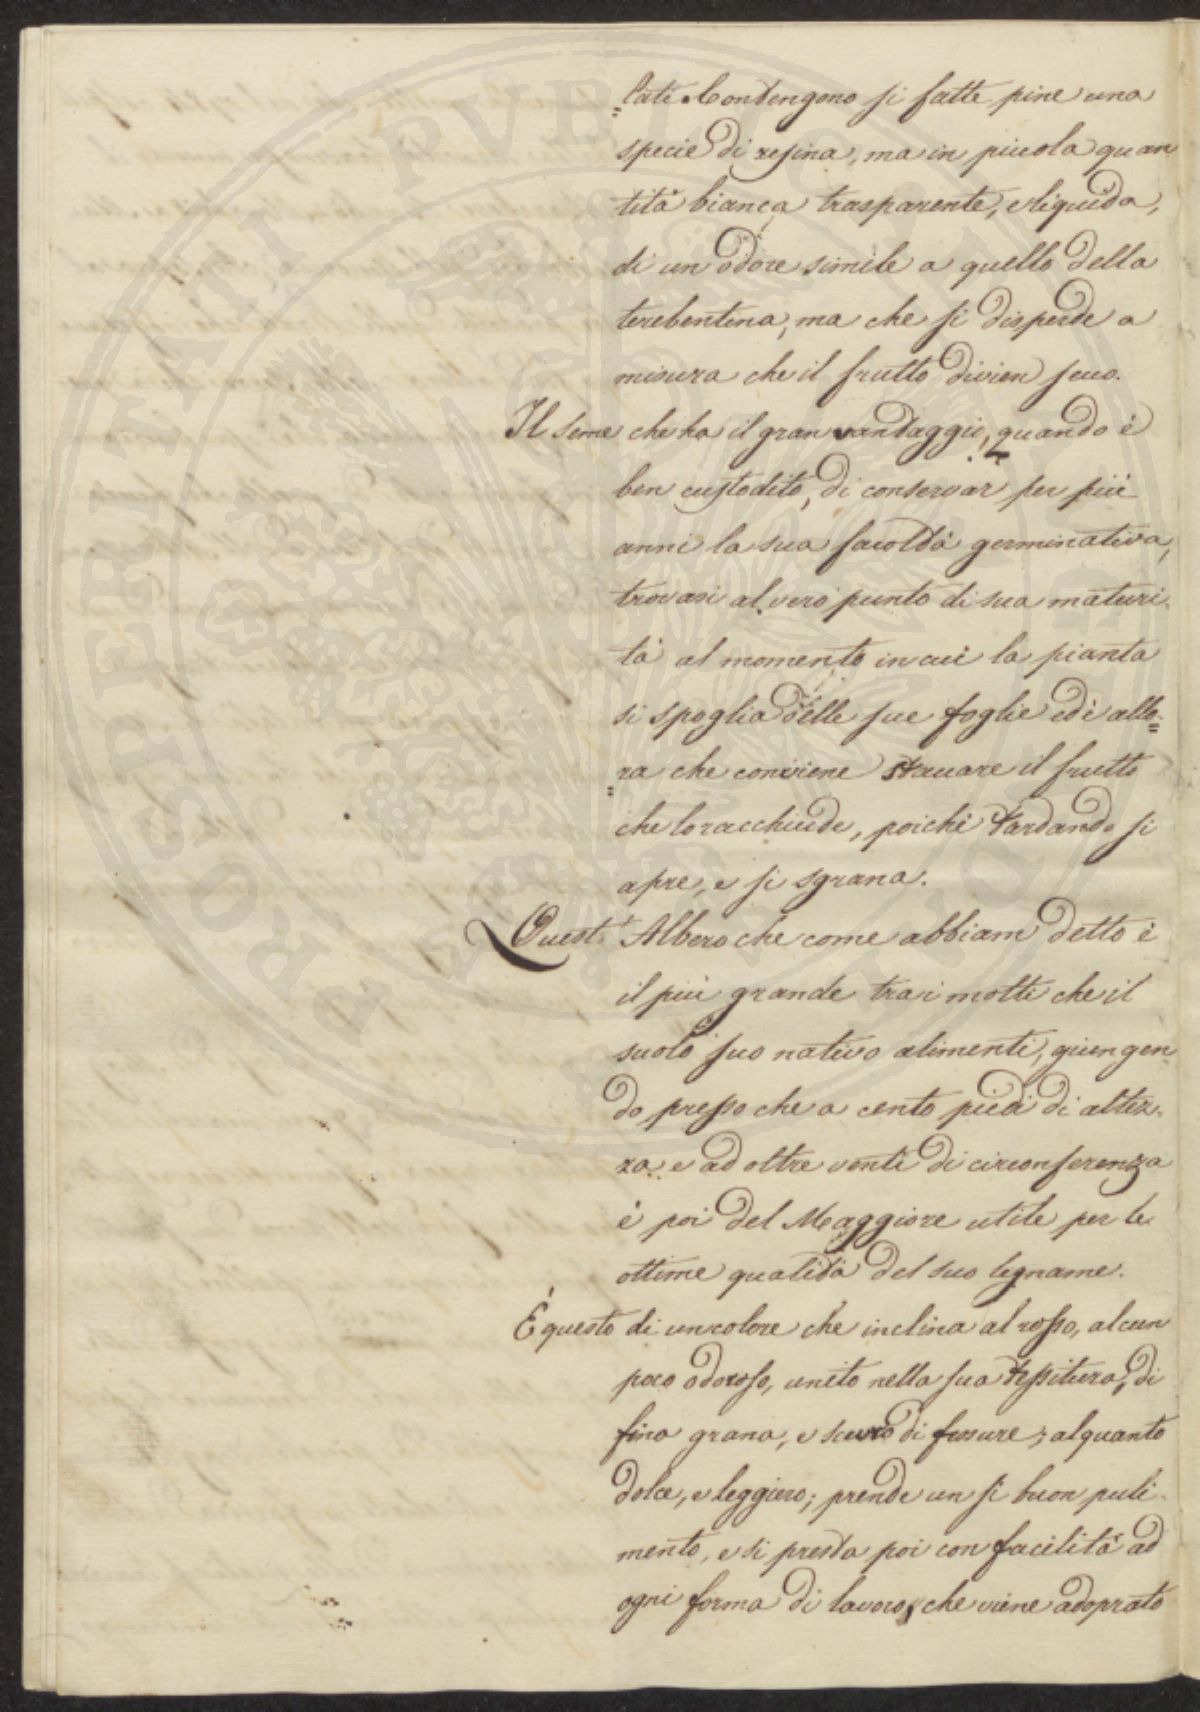 =lati. Contengono si fatte pine una
specie di resina, ma in piccola quan
tità bianca trasparente, e liquida,
di un odore simile a quello della
terebentina, ma che si disperde a
misura che il frutto divien secco.
Il Seme che ha il gran vantaggio, quando è
ben custodito, di conservar per più
anni la sua facoltà germinativa,
trovasi al vero punto di sua maturi-
tà al momento in cui la pianta
si spoglia delle sue foglie ed è allo=
=ra che conviene staccare il frutto
che lo racchiude, poichè tardando si
apre, e si sgrana.
Quest' Albero che come abbiam detto è
il più grande tra i molti che il
suolo suo nativo alimenti, giungen
do presso che a cento piedi di altez-
za e ad oltre venti di circonferenza
è poi del Maggiore utile per le
ottime qualità del suo legname.
È questo di un colore che inclina al rosso, alcun
poco odoroso, unito nella sua tessitura, di
fina grana, e scevro di fessure; alquanto
dolce, e leggiero; prende un si buon puli-
mento, e si presta poi con facilità ad
ogni forma di lavoro, che viene adoprato
PROSPERITATI PVBLICAE